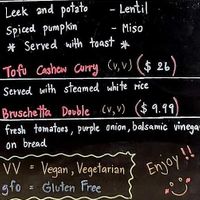 Leek and potato - Lentil
Spiced pumpkin - Miso
* Served with toast *
Tofu Cashew Curry (v,v) ($ 26)
Served with steamed white rice
Bruschetta Double (v,v) ($ 9.99)
fresh tomatoes, purple onion, balsamic vinega
on bread
VV = Vegan, Vegetarian
gfo = Gluten Free
Enjoy!!